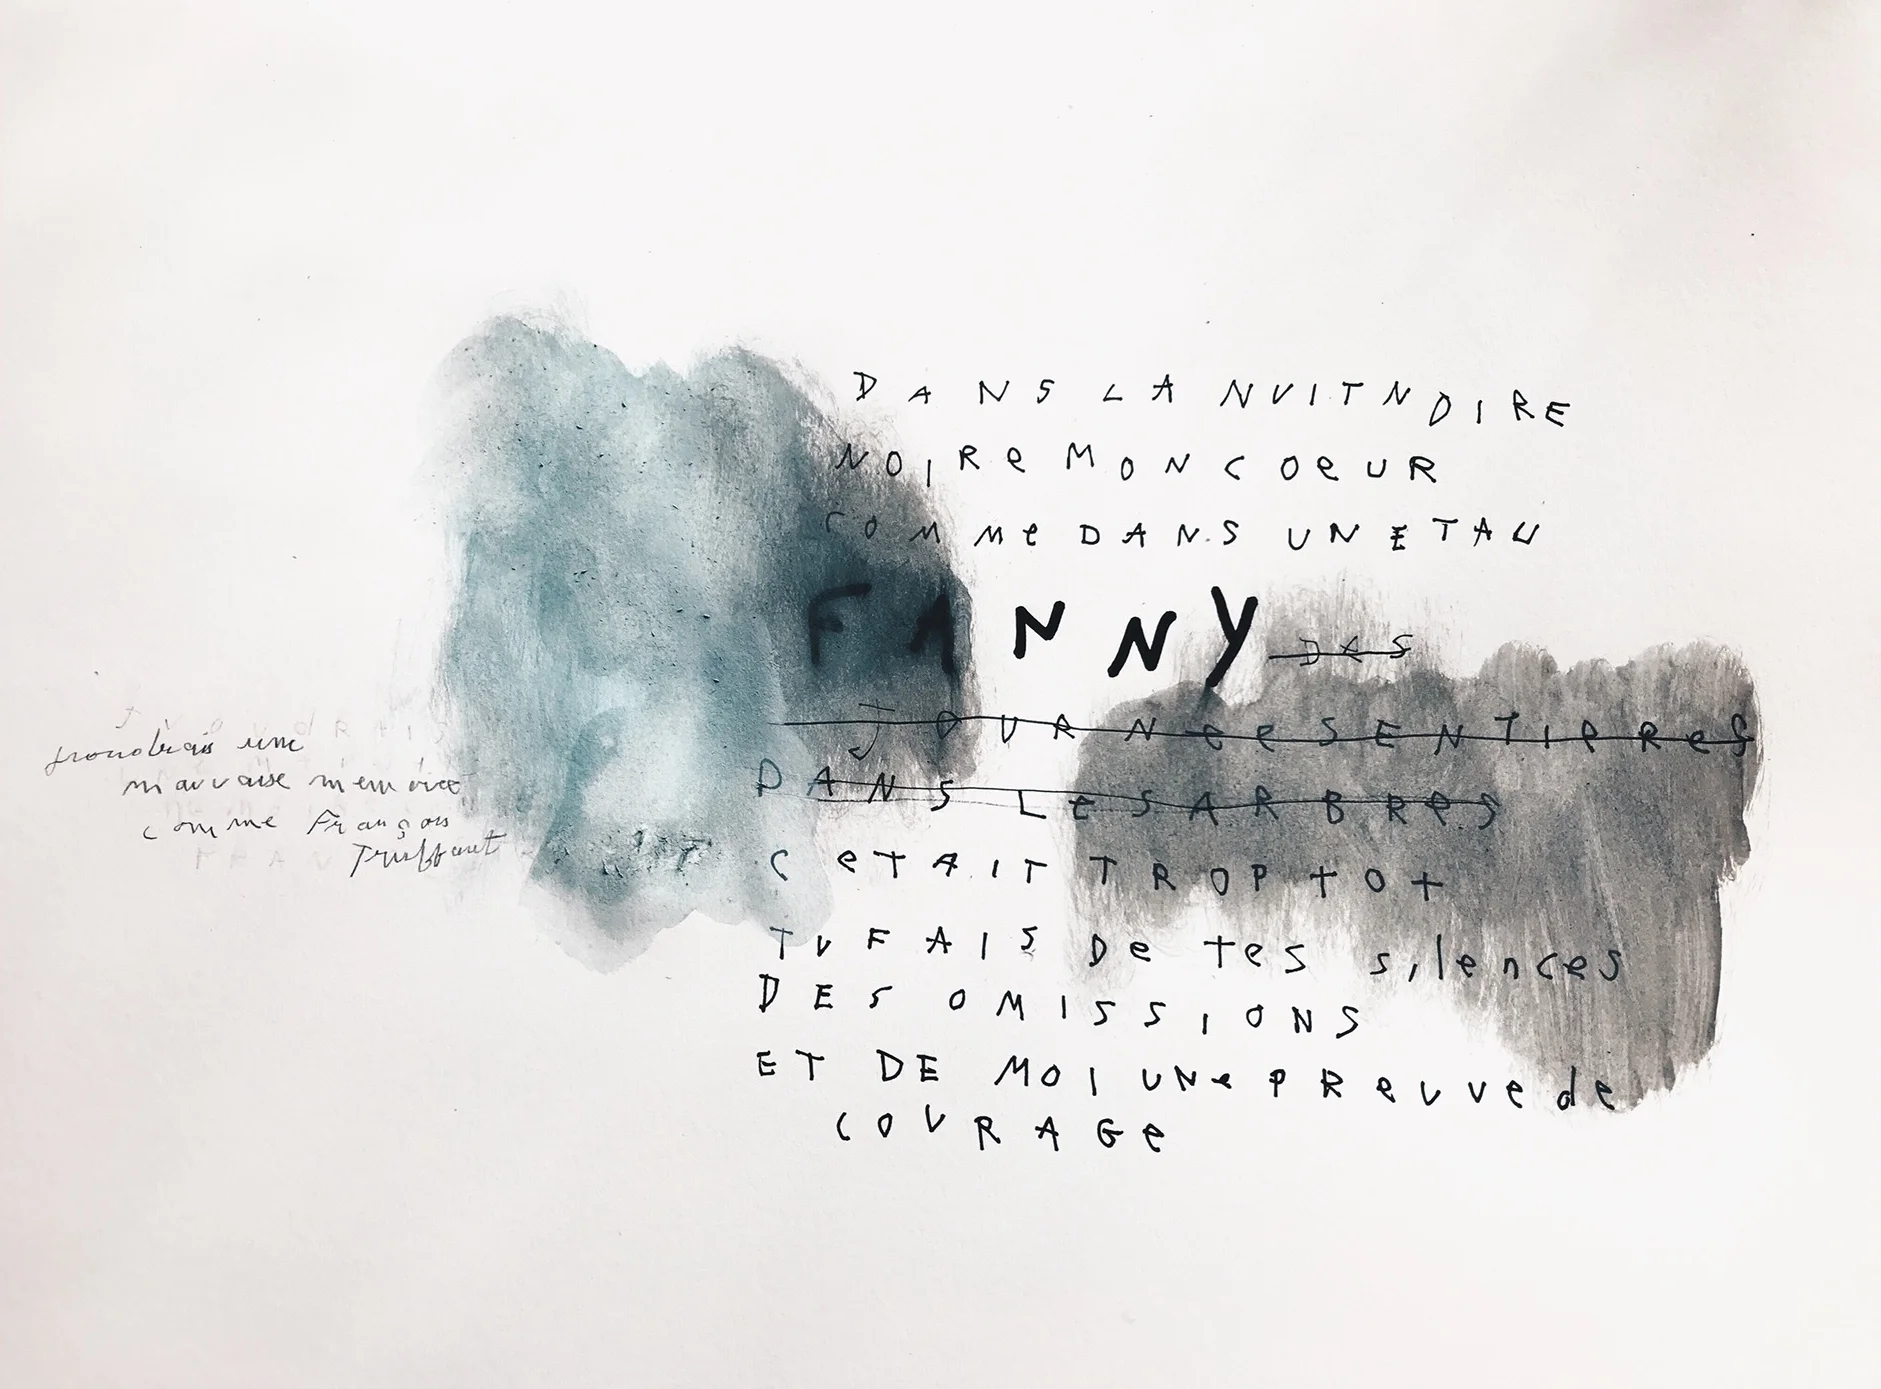 DANS LA NUIT NOIRE
NOIRe MON COeUR
COMMe DANS UN ETAU
FANNY DES
JOURNeeS ENTIeRes
DANS LeS ARBRes
C eTAIT TROP tot
TU FAIS De tes silences
DES OMISSIONS
ET DE MOI UNe PReuve de
COURAGe
une
mauvaise mémoire
comme François
Truffaut